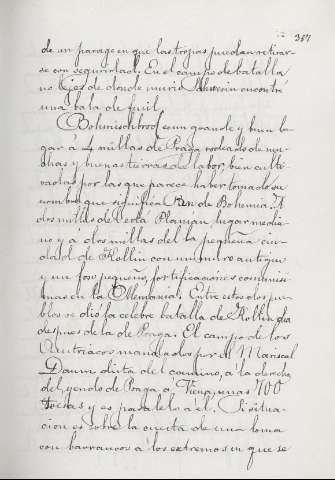 387
de un parage en que las tropas puedan retirar-
se con seguridad. En el campo de batalla
no lejos de donde murió Schwerin encontre
una bala de fusil.
Bohmischbrod es un grande y buen lu-
gar á 4 millas de Praga rodeado de mu-
chas y buenas tierras de labor, bien culti-
vadas por las que parece haber tomado su
nombre que significa Pan de Bohemia. A
dos millas de está Planian, lugar media-
no y a dos millas del la pequeña ciu-
dad de Kollin con un muro antiguo
y un foso pequeño, fortificaciones comunisi-
mas en la Alemania. Entre estos dos pue-
blos se dió la celebre batalla de Kollin
despues de la de Praga. El campo de los
Austriacos mandados por el Mariscal
Daun dista del camino, a la derecha
del yendo de Praga á Viena, unas 700
toesas y es paralelo a el. Si situa-
cion es sobre la cresta de una loma
con barrancos á los extremos en que se